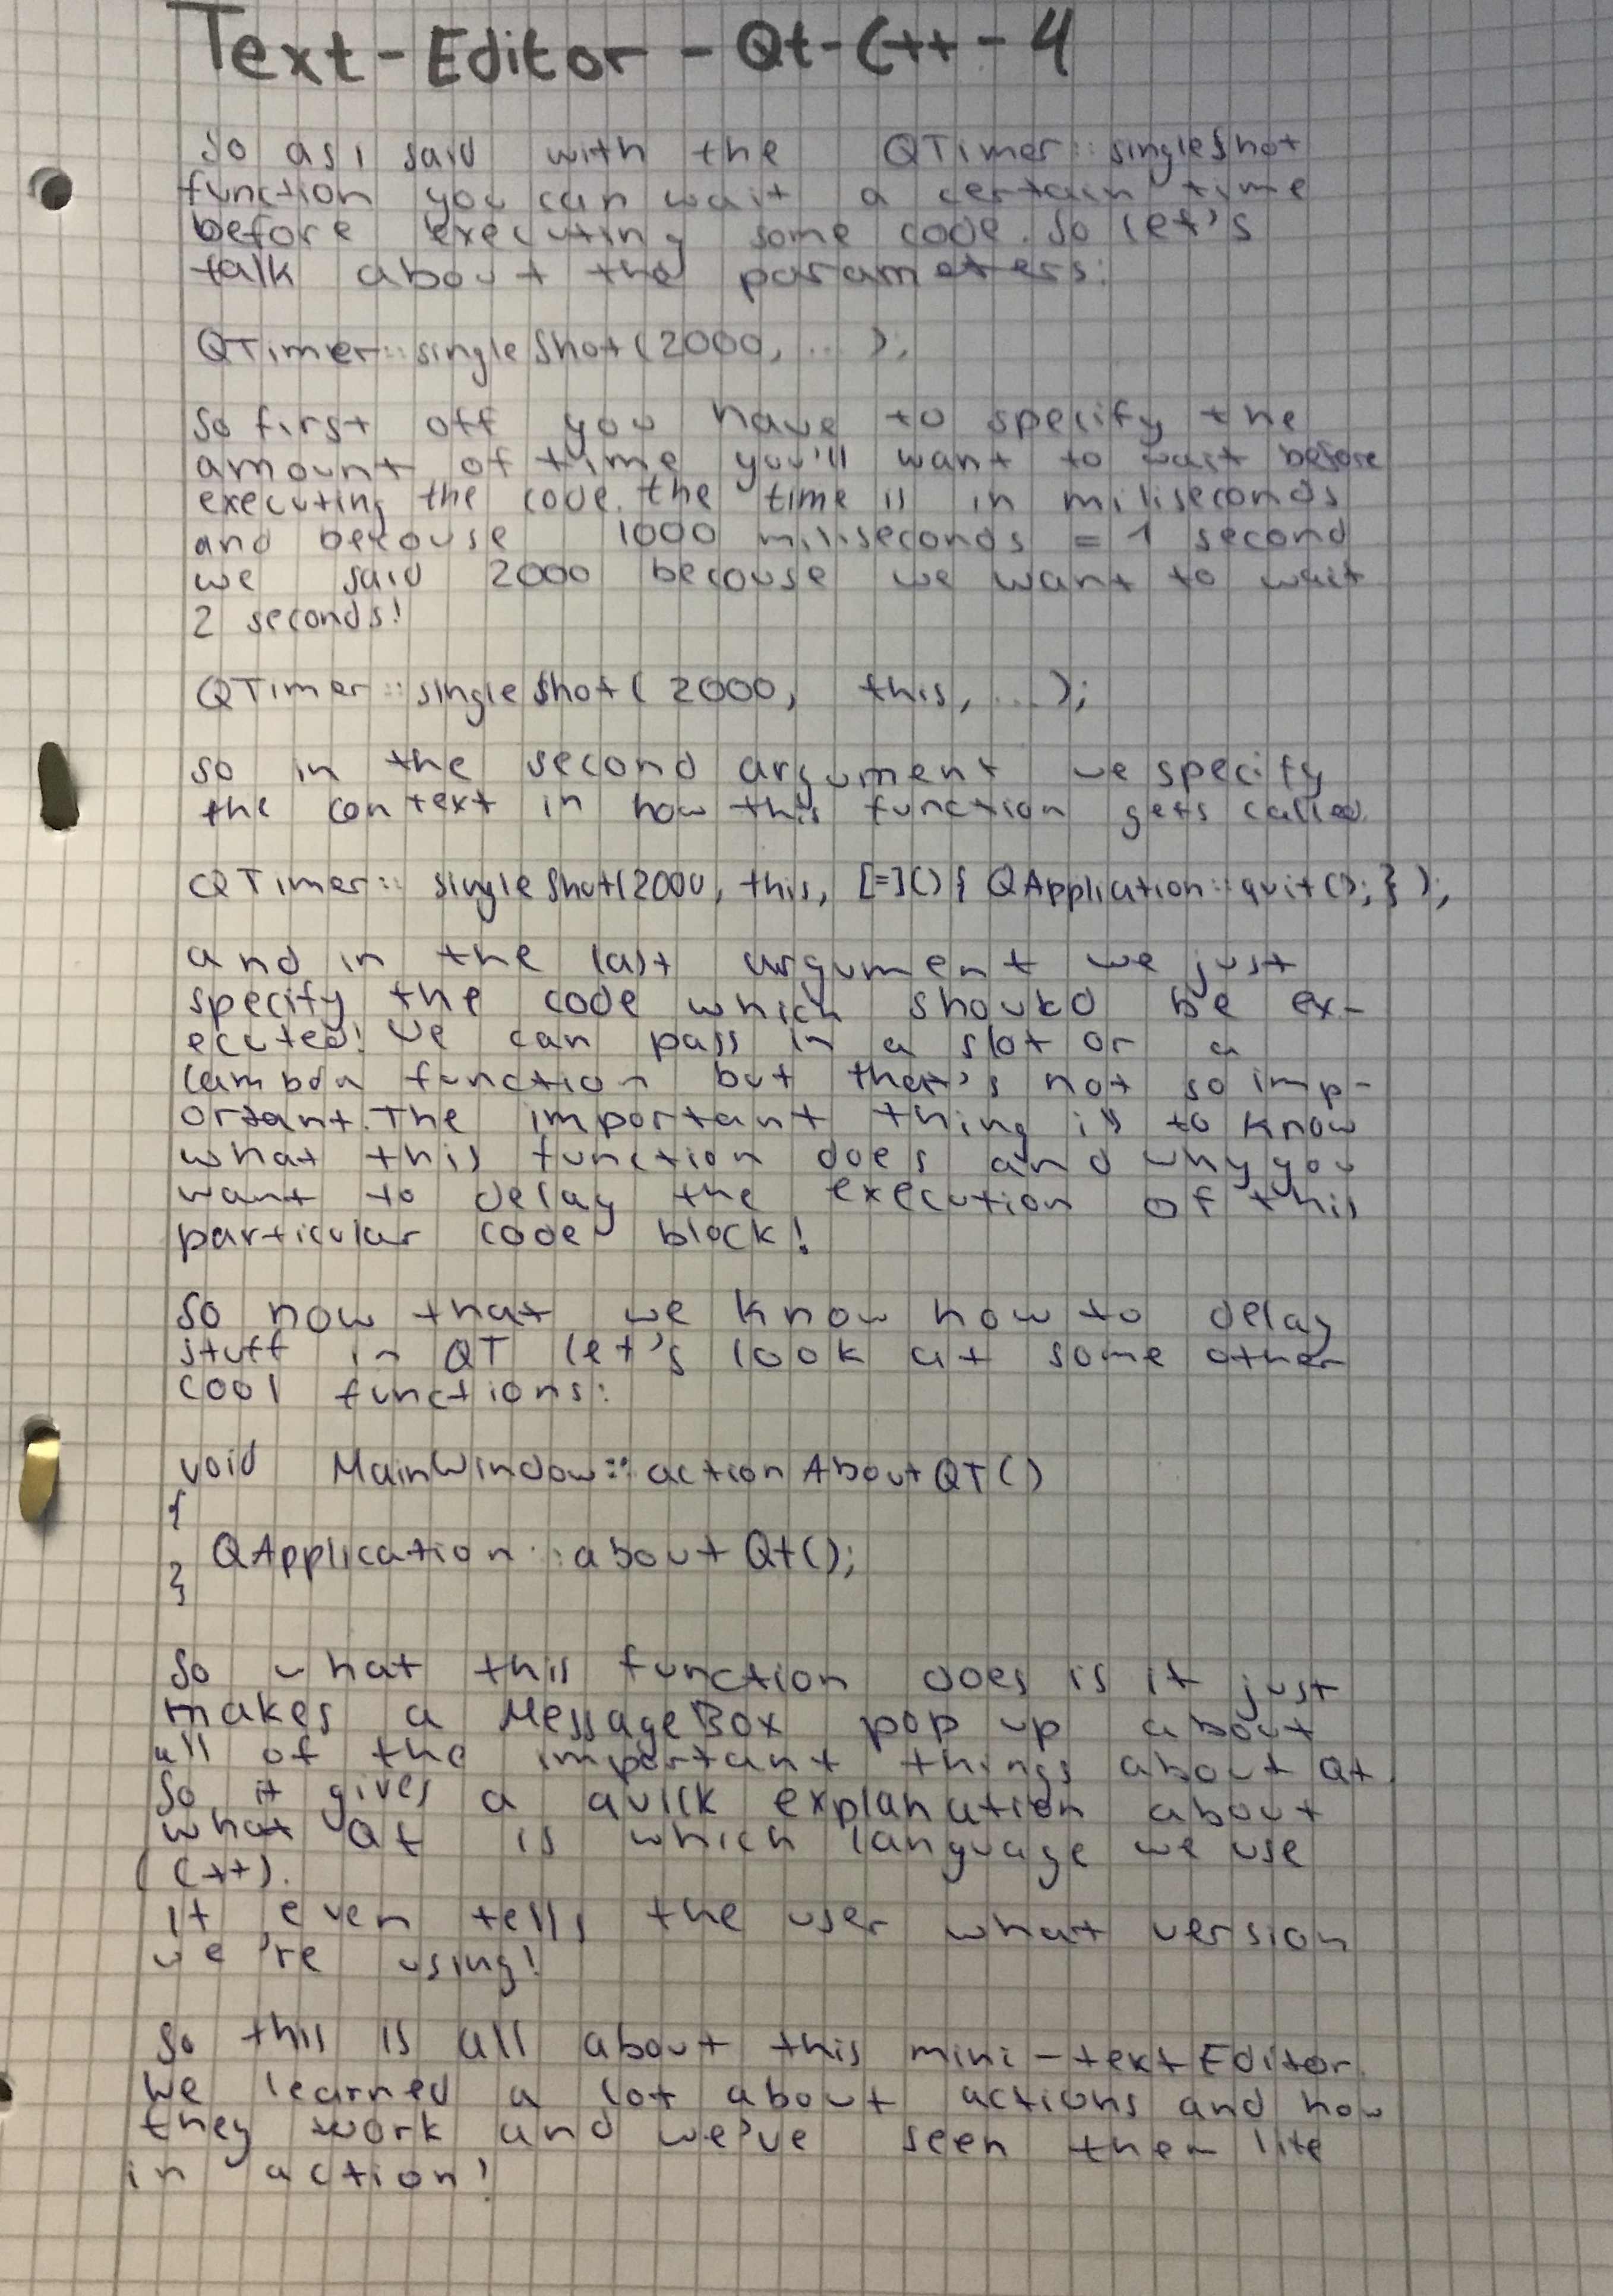 Text-Editor-Qt-C++-4
So as i said with the QTimer::singleShot
function you can wait a certain time
before executing some code. So let's
talk about the parameters:
QTimer::singleShot(2000, ...);
So first off you have to specify the
amount of time you'll want to wait before
executing the code. the time is in miliseconds
and becouse 1000 miliseconds = 1 second
we said 2000 becouse we want to wait
2 seconds!
QTimer::singleShot( 2000, this, ...);
so in the second argument we specify
the context in how this function gets called.
QTimer:: singleShot(2000, this, [=](){ QApplication::quit(); });
and in the last argument we just
specify the code which should be ex-
ecuted! We can pass in a slot or a
lambda function but that's not so imp-
ortant. The important thing is to know
what this function does and why you
want to delay the execution of this
particular code block!
So now that we know how to delay
stuff in QT let's look at some other
cool functions:
void MainWindow::actionAboutQT()
{
QApplication::aboutQt();
}
So what this function does is it just
makes a MessageBox pop up about
all of the important things about Qt.
So it gives a quick explanation about
what Qt is which language we use
(C++).
It even tells the user what version
we're using!
So this is all about this mini-textEditor.
We learned a lot about actions and how
they work and we've seen them life
in action!